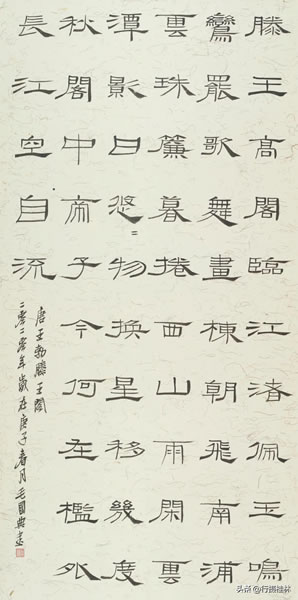 滕王高閣臨江渚佩玉鳴
鸞罷歌舞畫棟朝飛南浦
雲珠簾暮捲西山雨閑雲
潭影日悠〻物換星移幾度
秋閣中帝子今何在檻外
長江空自流
唐王勃滕王閣
二零二零年歲在庚子春月毛國典書
头条@行摄桂林